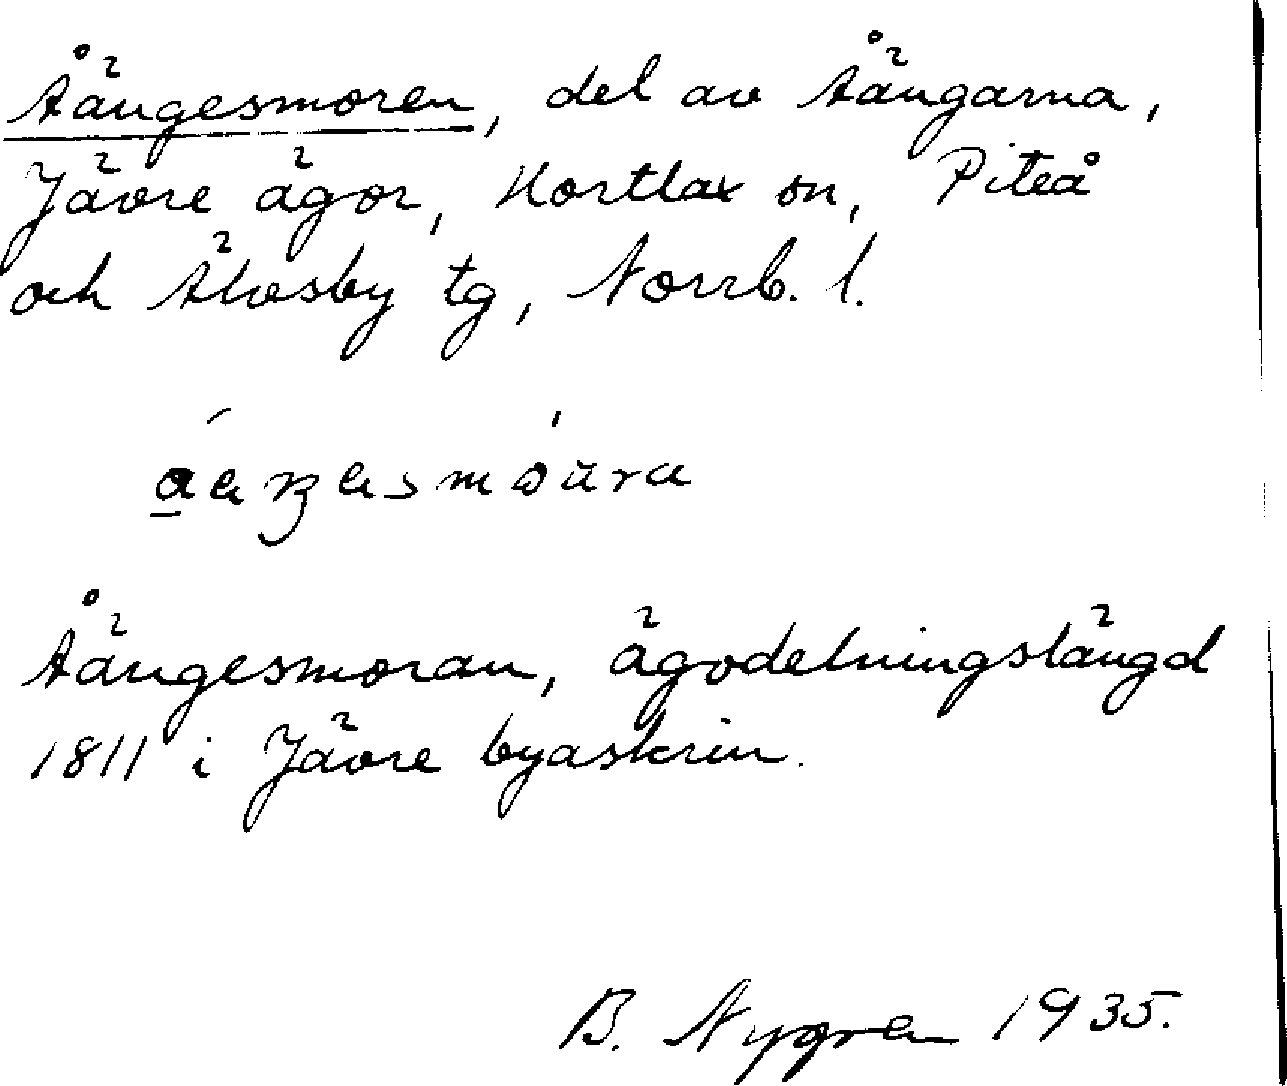 Åängesmoren, del av Åängarna,
Jävre ägor, Hortlax sn, Piteå
och Älvsby tg, Norrb. l.
Åängesmoran, ägodelningslängd
1811 i Jävre byaskrin.
B. Nygren 1935.